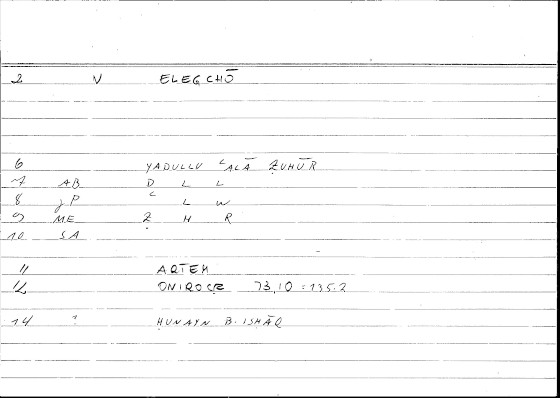 2 V ELEGCHŌ
6 YADULLU ʿALĀ ẒUHŪR
7 AB D L L
8 JP ʿ L W
9 ME Ẓ H R
10 SA
11 ARTEM
12 ONIROCR 73,10 = 135.2
14 : ḤUNAYN B. ISḤĀQ